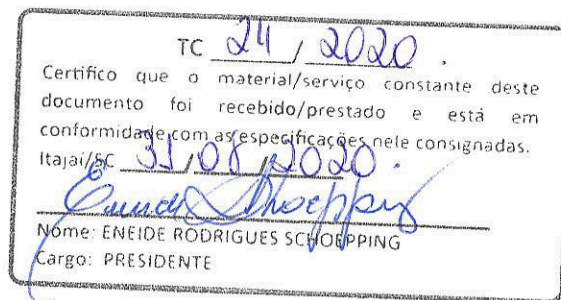 TC 24 / 2020.
Certifico que o material/serviço constante deste
documento foi recebido/prestado e está em
conformidade com as especificações nele consignadas.
Itajaí/SC 31/08/2020.
Eneide Schoepping
Nome: ENEIDE RODRIGUES SCHOEPPING
Cargo: PRESIDENTE